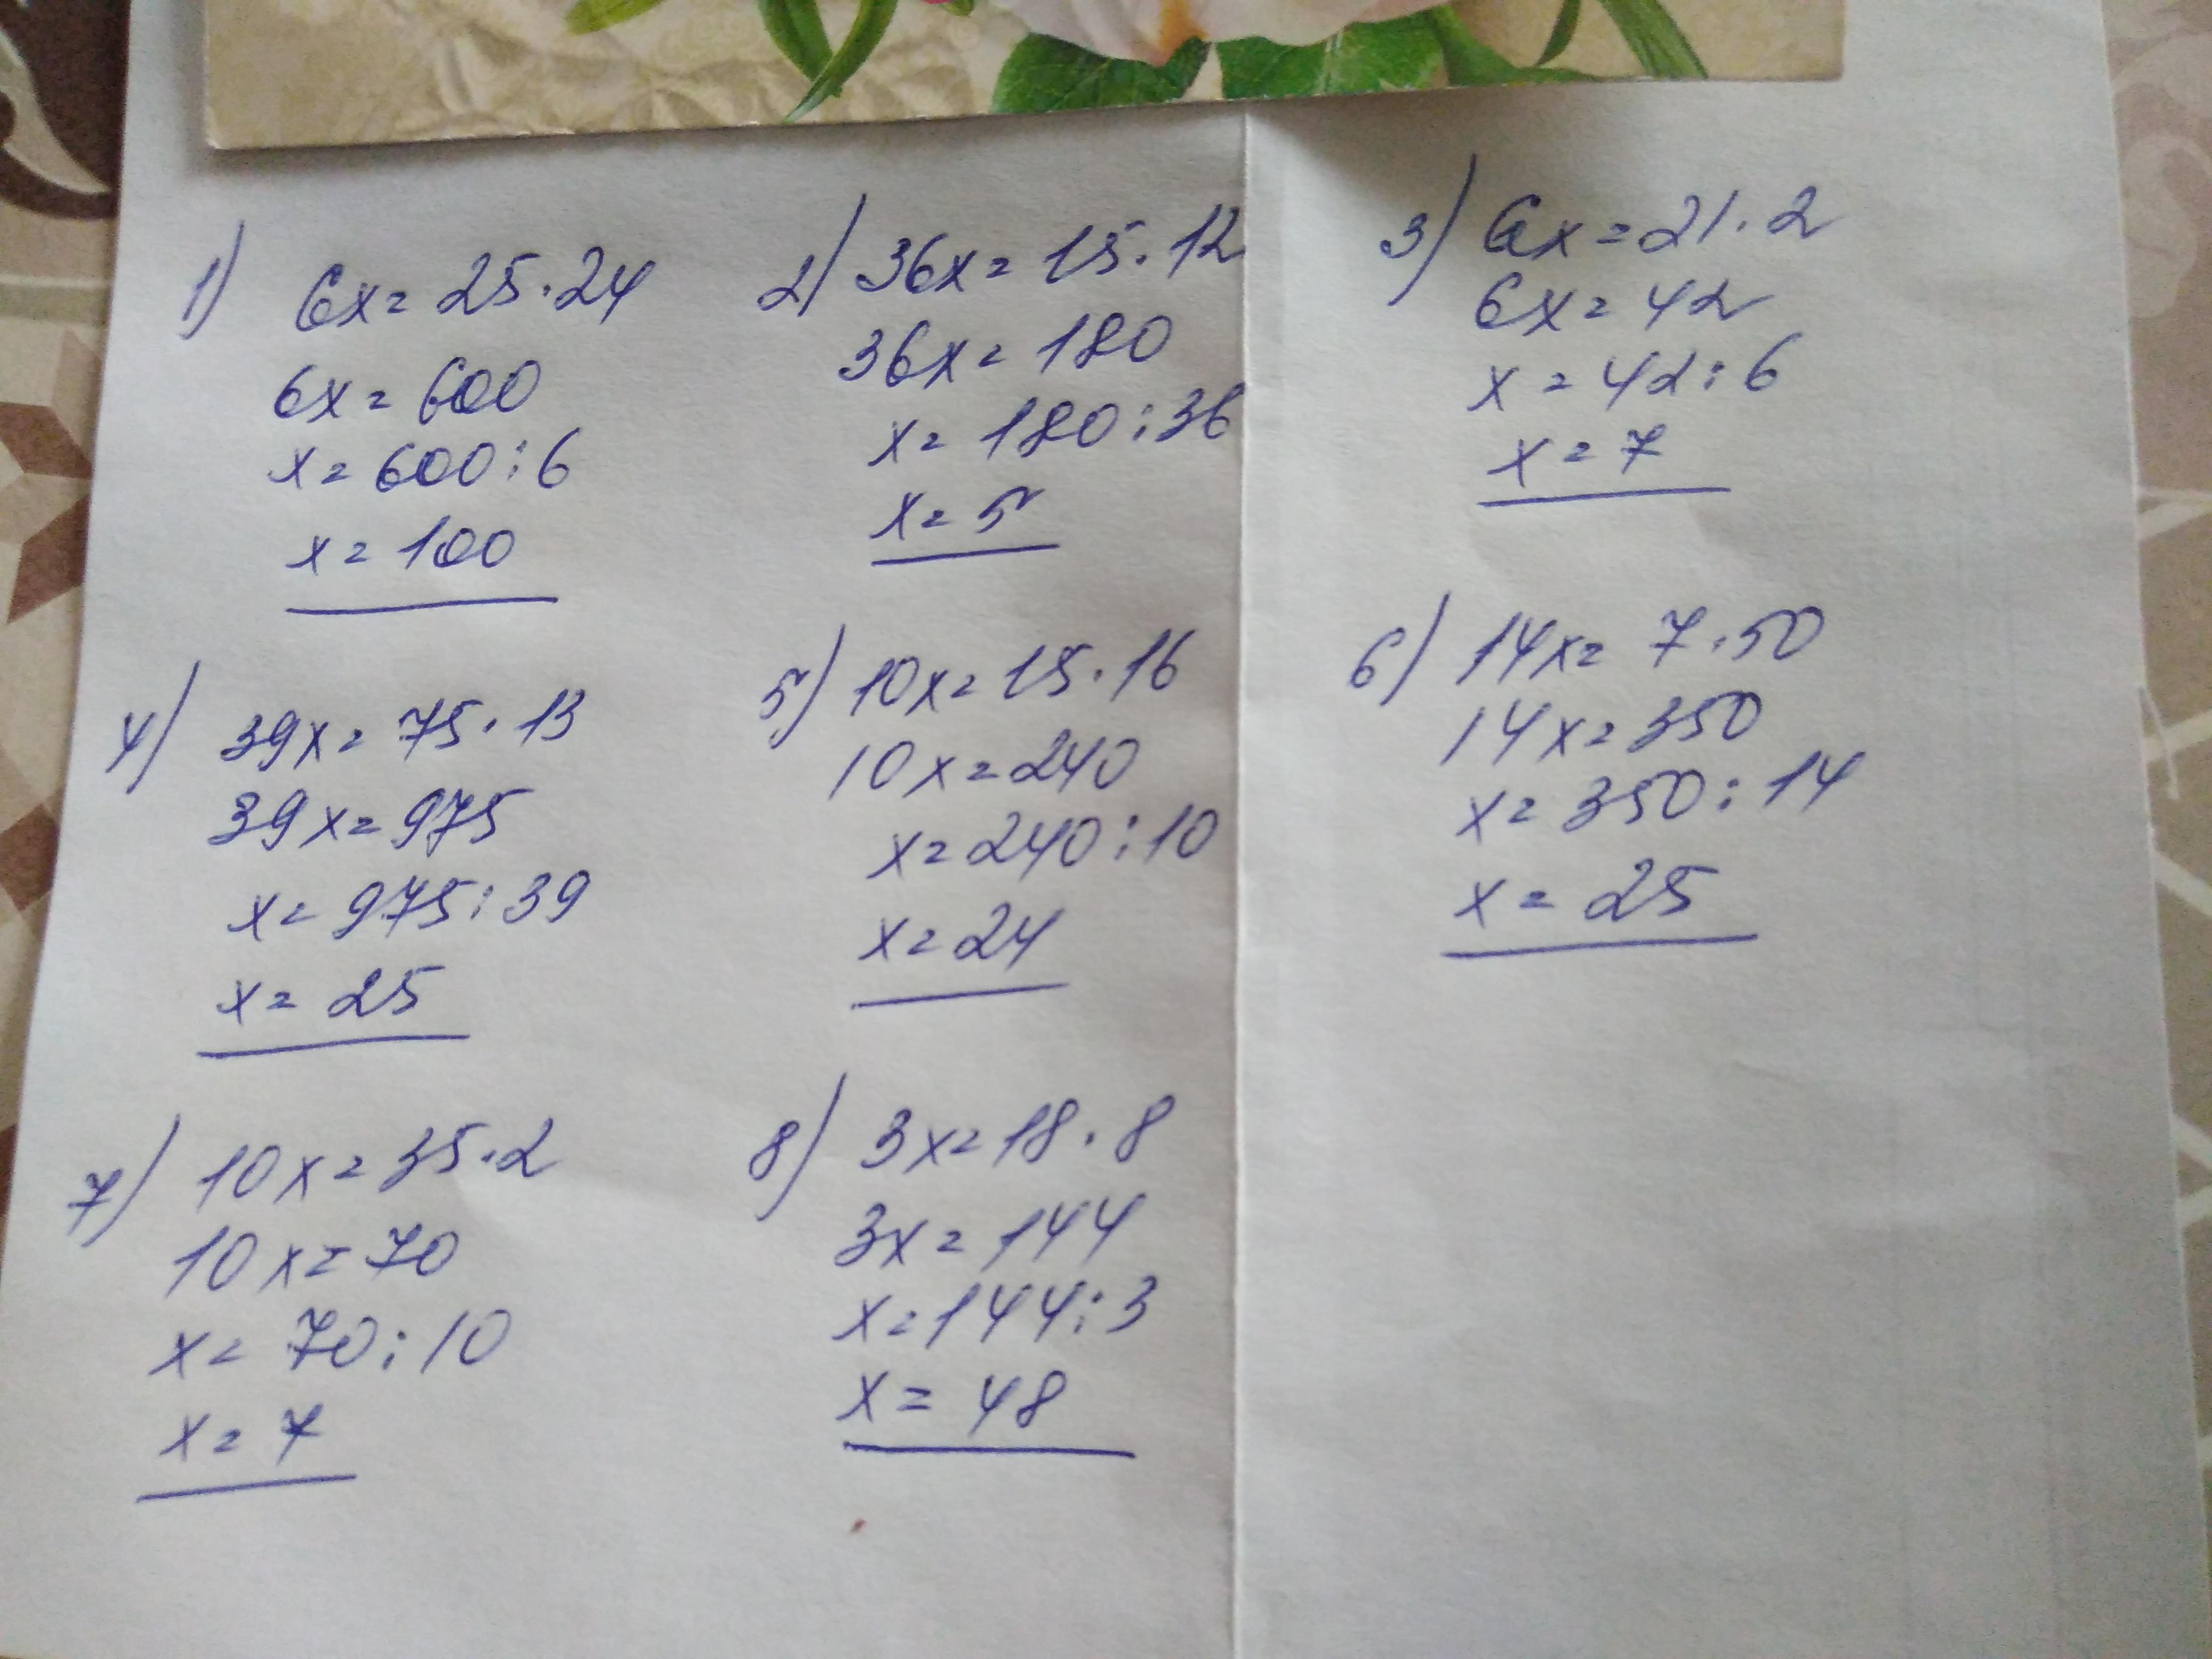 1) 6x = 25 · 24
6x = 600
x = 600 : 6
x = 100
2) 36x = 15 · 12
36x = 180
x = 180 : 36
x = 5
3) 6x = 21 · 2
6x = 42
x = 42 : 6
x = 7
4) 39x = 75 · 13
39x = 975
x = 975 : 39
x = 25
5) 10x = 15 · 16
10x = 240
x = 240 : 10
x = 24
6) 14x = 7 · 50
14x = 350
x = 350 : 14
x = 25
7) 10x = 35 · 2
10x = 70
x = 70 : 10
x = 7
8) 3x = 18 · 8
3x = 144
x = 144 : 3
x = 48